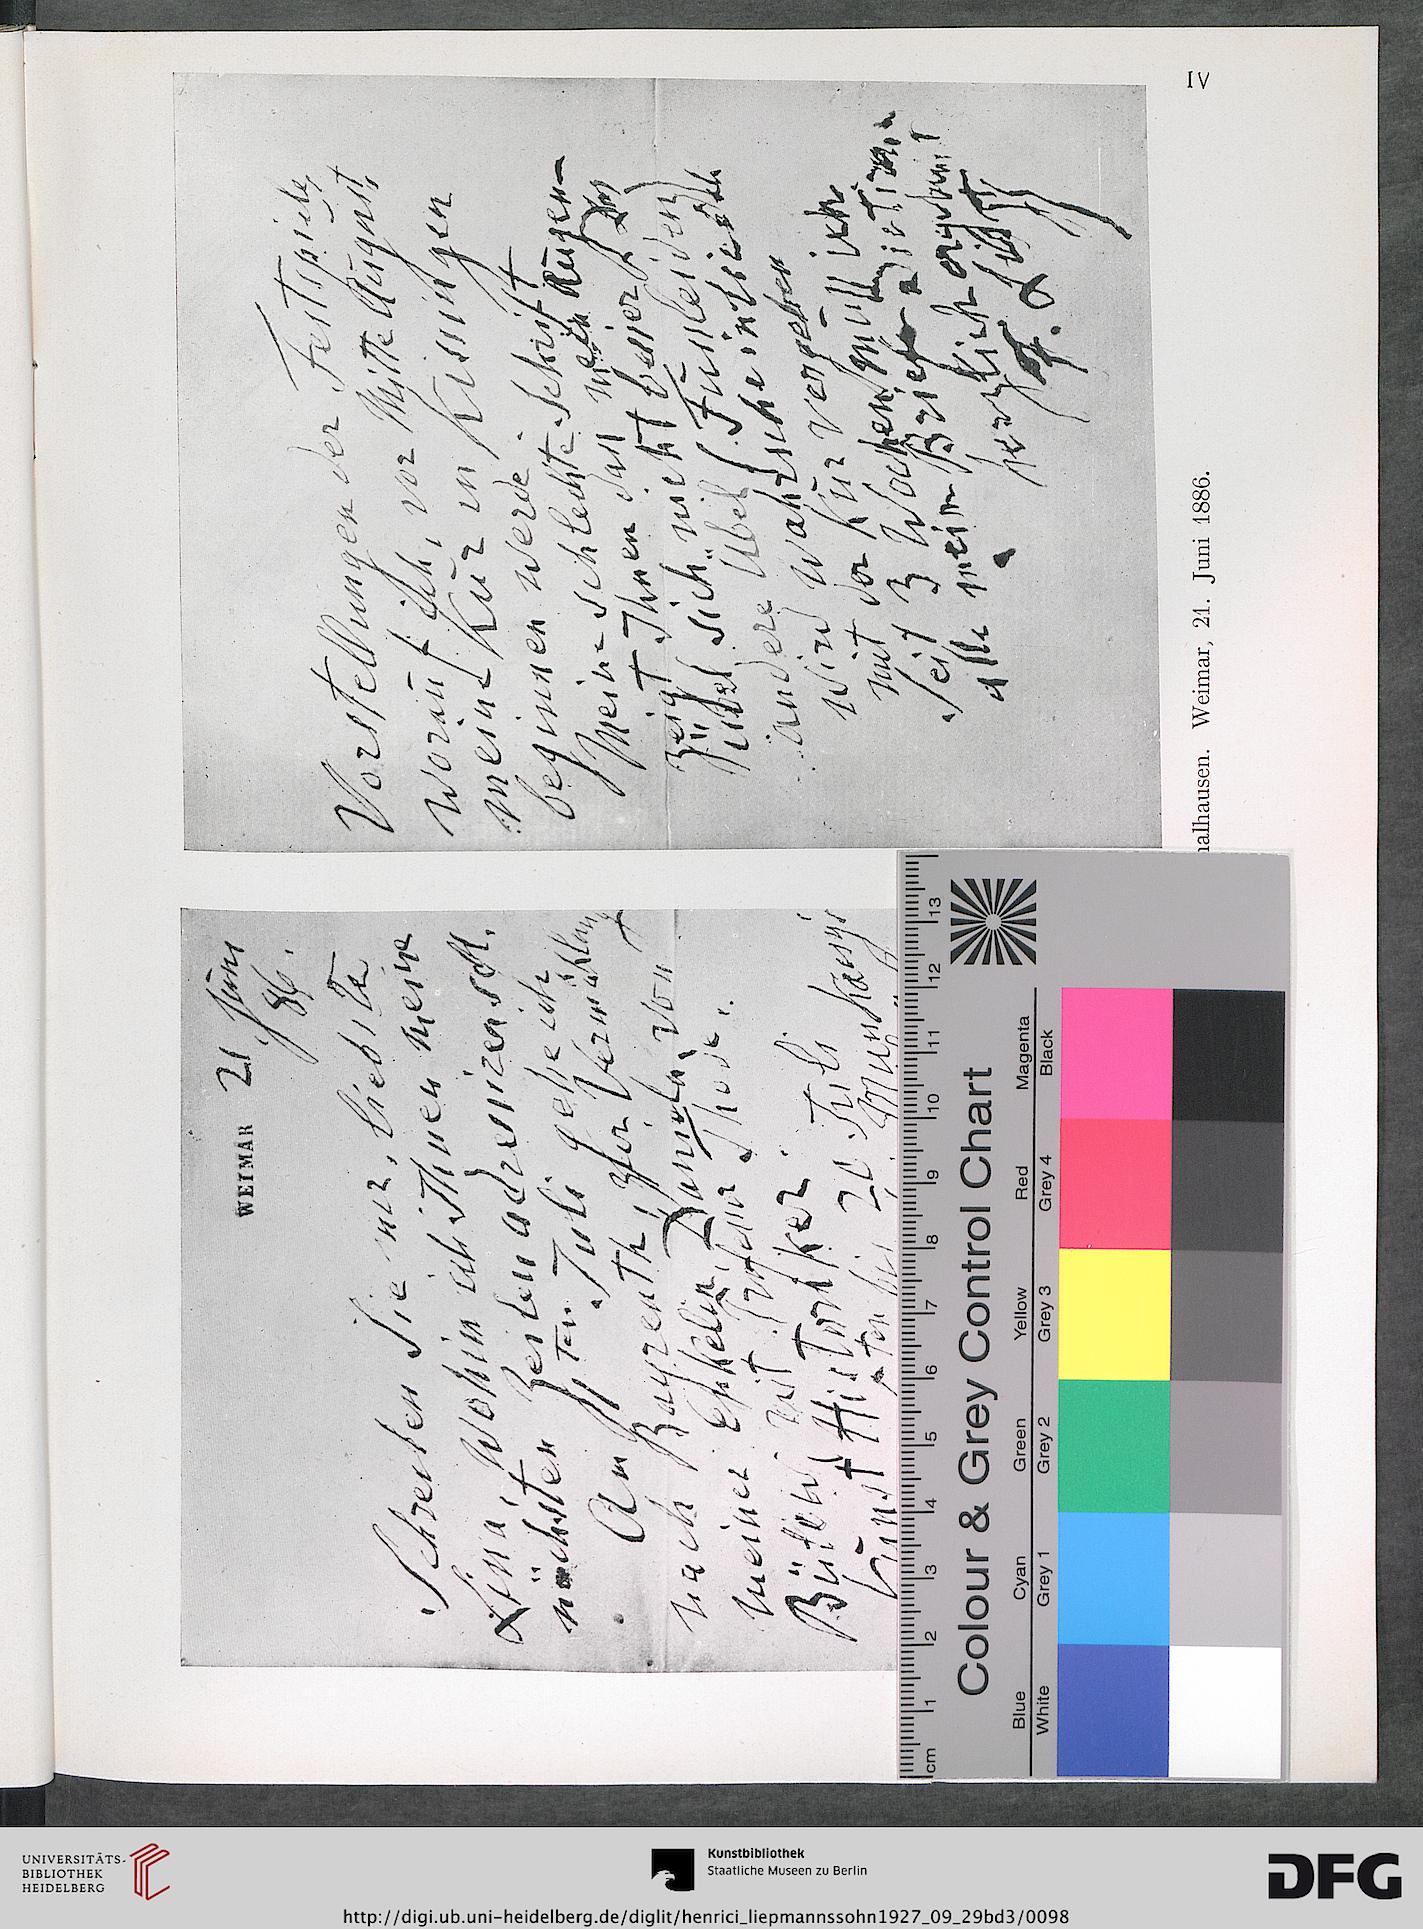 IV
WEIMAR 21 Juni
86.
Schreiben Sie mir, liebste
Lina, wohin ich Ihnen meine
nächsten Zeilen adressiren soll.
Am ten Juli gehe ich
nach Bayreuth, zur Vermählung
meiner Enkelin, Daniela von
Bülow mit Professor Thode,
Kunst Historiker.
bis 20 Juli
Vorstellungen der Festspiele,
worauf ich, vor Mitte August,
meine Kur in Kissingen
beginnen werde.
Meine schlechte Schrift
zeigt Ihnen dass mein Augen-
übel sich nicht bessert
Übel Fussleiden
andere
wird wahrscheinlich
mit der Kur vergehen
Seit 3 Wochen muss ich
alle meine Briefe dictiren
herzlich ergebenst
F. Liszt
malhausen. Weimar, 21. Juni 1886.
cm 1 2 3 4 5 6 7 8 9 10 11 12 13
Colour & Grey Control Chart
Blue Cyan Green Yellow Red Magenta
White Grey 1 Grey 2 Grey 3 Grey 4 Black
UNIVERSITÄTS-
BIBLIOTHEK
HEIDELBERG
Kunstbibliothek
Staatliche Museen zu Berlin
DFG
http://digi.ub.uni-heidelberg.de/diglit/henrici_liepmannssohn1927_09_29bd3/0098